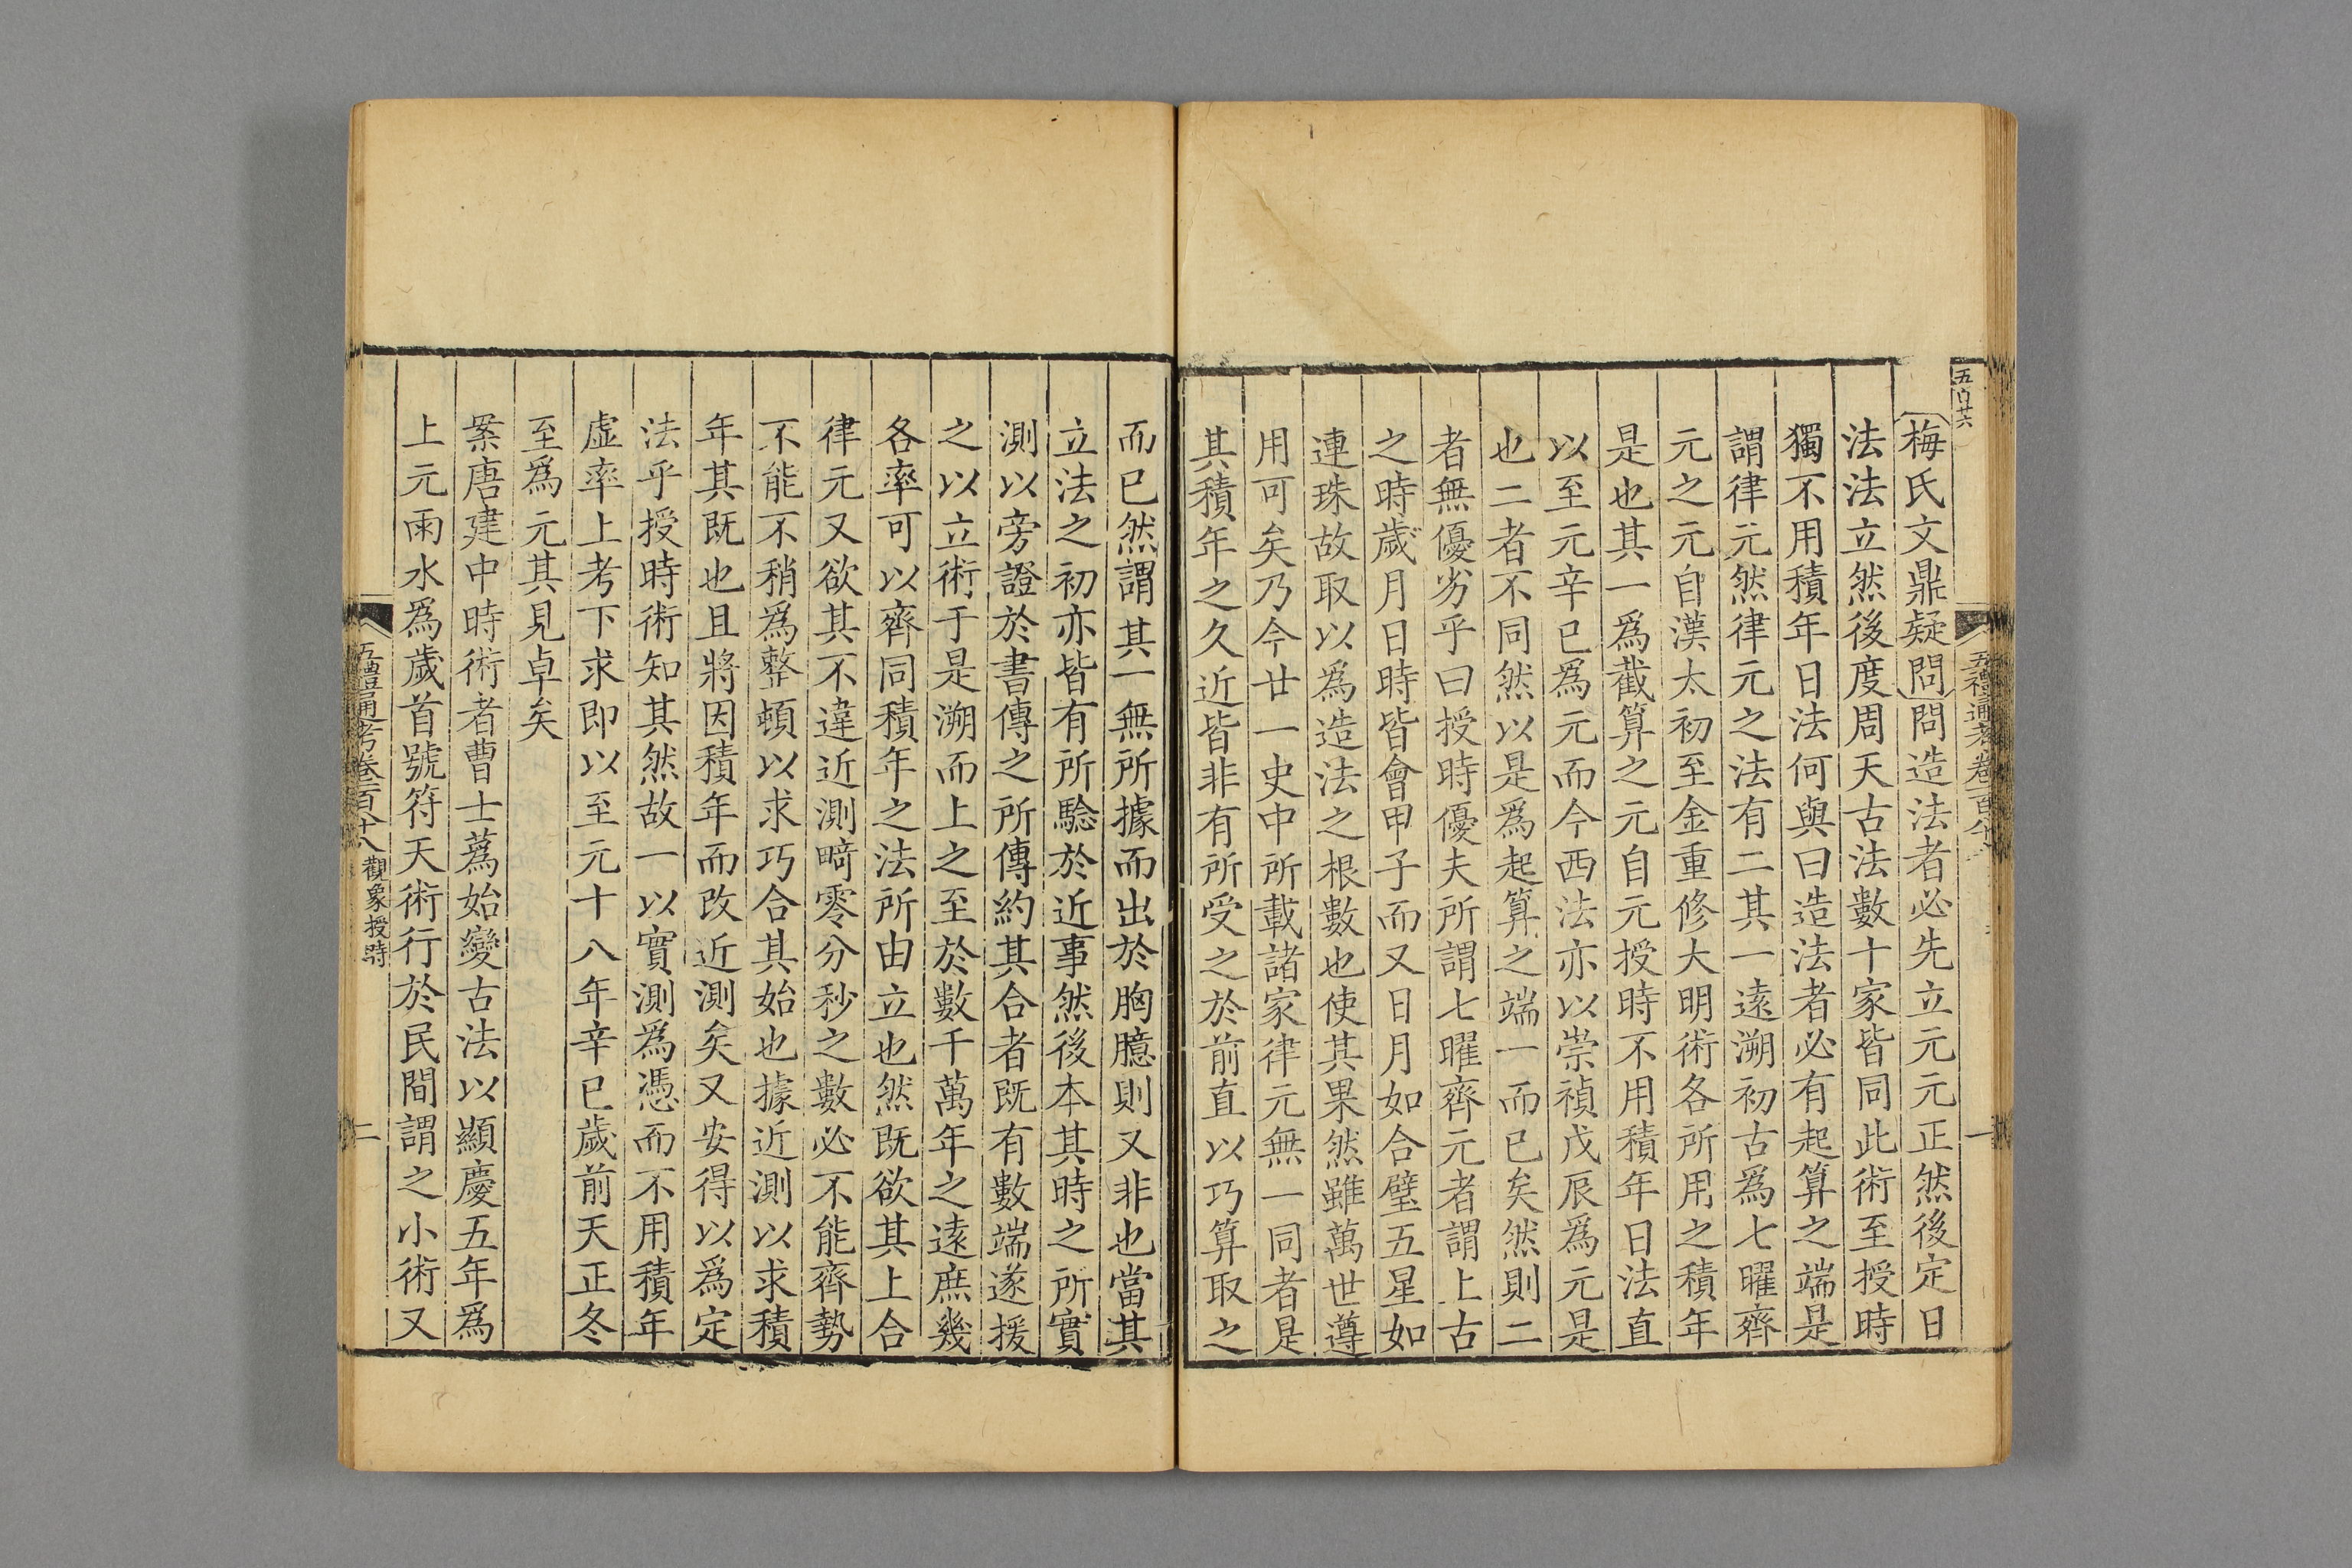 五百廿六
五禮通考卷一百八
一
梅氏文鼎疑問問造法者必先立元元正然後定日
法法立然後度周天古法數十家皆同此術至授時
獨不用積年日法何與曰造法者必有起算之端是
謂律元然律元之法有二其一遠溯初古爲七曜齊
元之元自漢太初至金重修大明術各所用之積年
是也其一爲截算之元自元授時不用積年日法直
以至元辛巳爲元而今西法亦以崇禎戊辰爲元是
也二者不同然以是爲起算之端一而已矣然則二
者無優劣乎曰授時優夫所謂七曜齊元者謂上古
之時歲月日時皆會甲子而又日月如合璧五星如
連珠故取以爲造法之根數也使其果然雖萬世遵
用可矣乃今廿一史中所載諸家律元無一同者是
其積年之久近皆非有所受之於前直以巧算取之
而已然謂其一無所據而出於胸臆則又非也當其
立法之初亦皆有所驗於近事然後本其時之所實
測以旁證於書傳之所傳約其合者既有數端遂援
之以立術于是溯而上之至於數千萬年之遠庶幾
各率可以齊同積年之法所由立也然既欲其上合
律元又欲其不違近測畸零分秒之數必不能齊勢
不能不稍爲整頓以求巧合其始也據近測以求積
年其既也且將因積年而改近測矣又安得以爲定
法乎授時術知其然故一以實測爲憑而不用積年
虛率上考下求即以至元十八年辛巳歲前天正冬
至爲元其見卓矣
案唐建中時術者曹士蔿始變古法以顯慶五年爲
上元雨水爲歲首號符天術行於民間謂之小術又
五禮通考卷一百十八 觀象授時
二